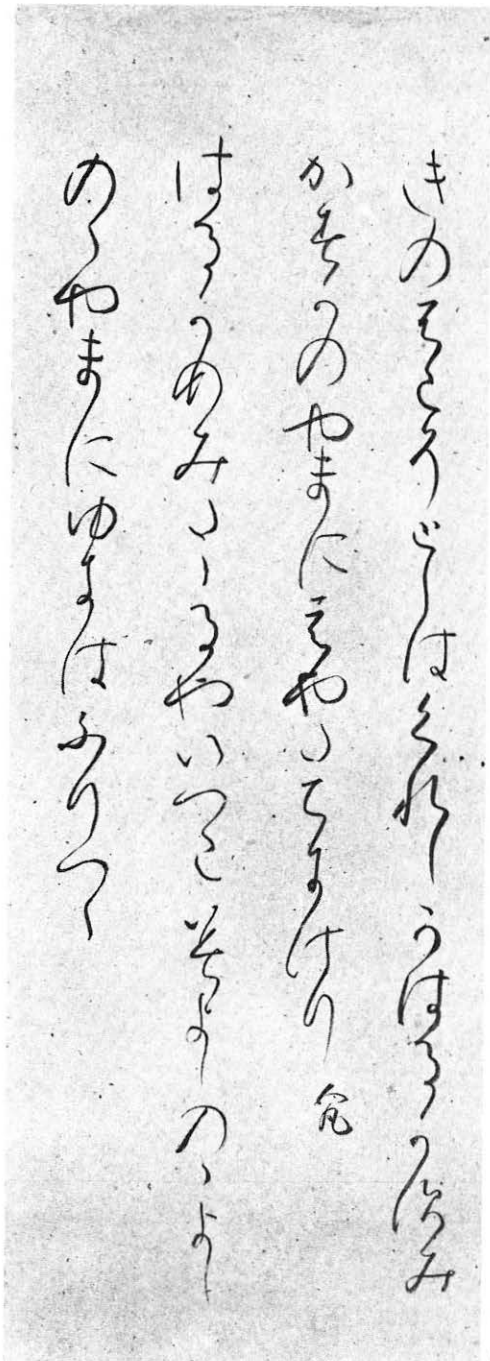 きのふこそとしはくれしかはるかすみ
かすかのやまにはやたちにけり
はるかすみたゝるやいつこみよしのゝよし
のゝやまにゆきはふりつゝ